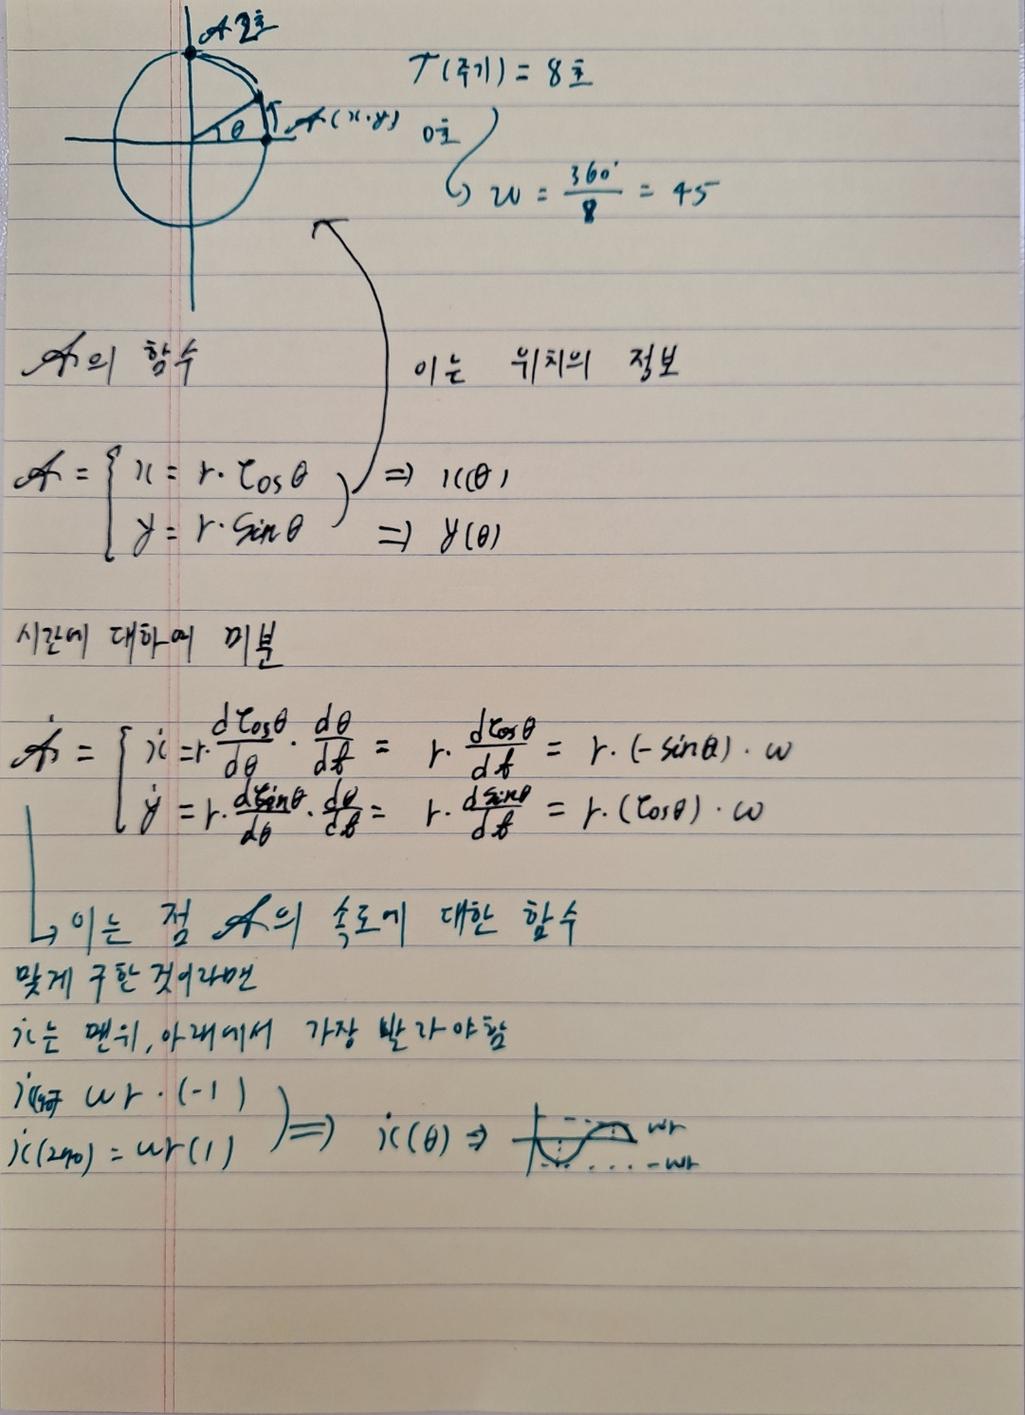 A 2초
T(주기) = 8초
θ A(x.y) 0초
w = 360°/8 = 45
A의 함수 이는 위치의 정보
A = { x = r · cosθ ⇒ x(θ)
y = r · sinθ ⇒ y(θ)
시간에 대하여 미분
Ȧ = { ẋ = r · dcosθ/dθ · dθ/dt = r · dcosθ/dt = r · (-sinθ) · ω
ẏ = r · dsinθ/dθ · dθ/dt = r · dsinθ/dt = r · (cosθ) · ω
↳ 이는 점 A의 속도에 대한 함수
맞게 구한 것이라면
ẋ는 맨위, 아래에서 가장 빨라야함
ẋ(90) = ωr · (-1)
ẋ(270) = ωr(1) ⇒ ẋ(θ) ⇒ ωr
-ωr